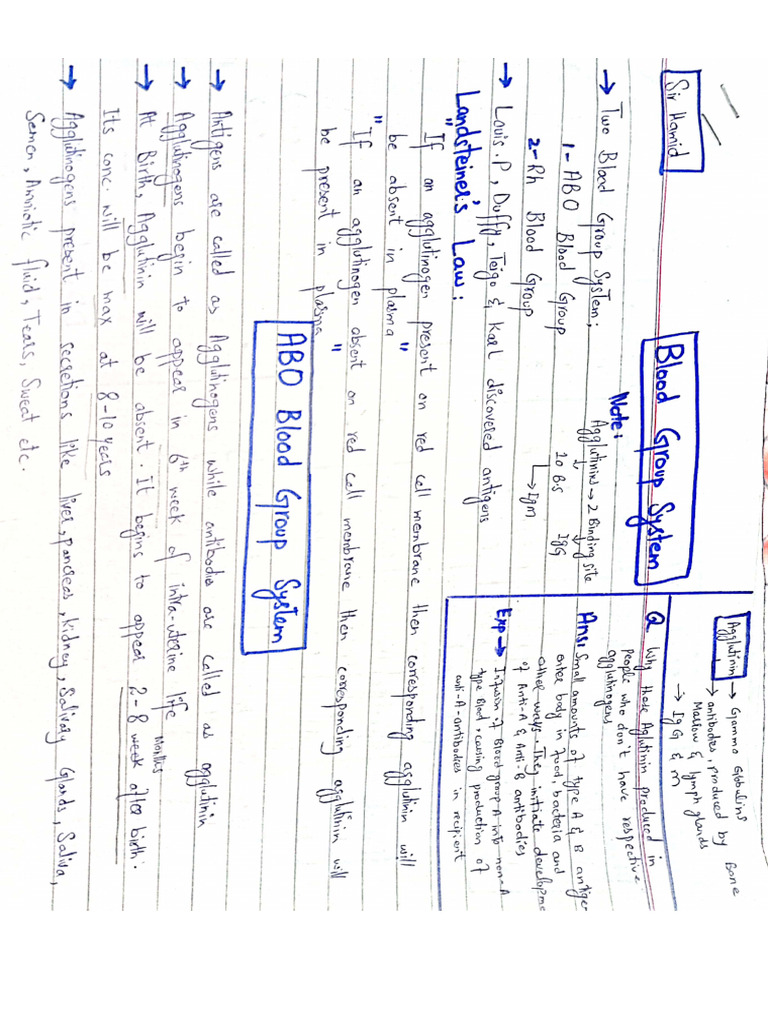 Sir Hamid
Blood Group System
→ Two Blood Group System;
1- ABO Blood Group
2- Rh Blood Group
Note:
Agglutinins → 2 Binding site
10 BS IgG
→ Igm
→ Louis.P, Duffy, Teigo & Karl discovered antigens
Agglutinin → Gamma Globulins
→ antibodies, produced by Bone
Marrow & lymph glands
→ IgG & m
Q Why those Aglutinin produced in
people who don't have respective
agglutinogens
Ans: Small amounts of type A & B antige
enter body in food, bacteria and
other ways. They initiate developme
of Anti-A & Anti-B antibodies
Exp → Infusion of Blood group A into non-A
type Blood, causing production of
anti-A-antibodies in recipient
Landsteiner's Law:
"If an agglutinogen present on red cell membrane then corresponding agglutinin will
be absent in plasma"
"If an agglutinogen absent on red cell membrane then corresponding agglutinin will
be present in plasma"
ABO Blood Group System
→ Antigens are called as Agglutinogens while antibodies are called as agglutinin
→ Agglutinogens begin to appear in 6th week of intra-uterine life
Months
→ At Birth, Agglutinin will be absent. It begins to appear 2-8 week after birth.
Its conc. will be max at 8-10 years
→ Agglutinogens present in secretions like liver, pancreas, kidney, Salivary Glands, Saliva,
Semen, Amniotic fluid, Tears, Sweat etc.